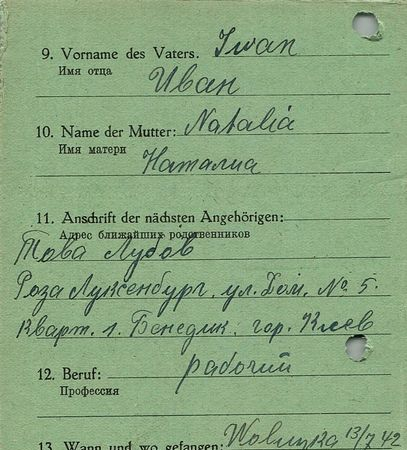 9. Vorname des Vaters. Iwan
Имя отца
Иван
10. Name der Mutter: Natalia
Имя матери
Наталиа
11. Anschrift der nächsten Angehörigen:
Адрес ближайших родственников
Това Лубов
Роза Луксенбург. ул. Дом. № 5.
Кварт. 1. Бенедик. гор. Киев
12. Beruf: рабочий
Профессия
13. Wann und wo gefangen: 13/7 42